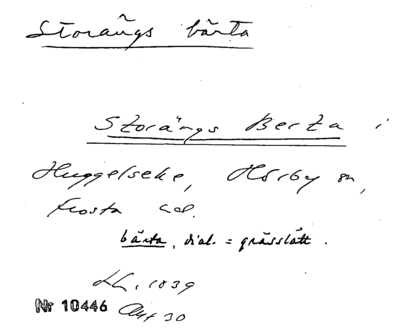 Storängs bärta
Storängs Berta i
Huggelseke, Hörby sn,
Frosta hd.
bärta, dial. = grässlätt.
Lk. 1839
Nr 10446 Akt 30